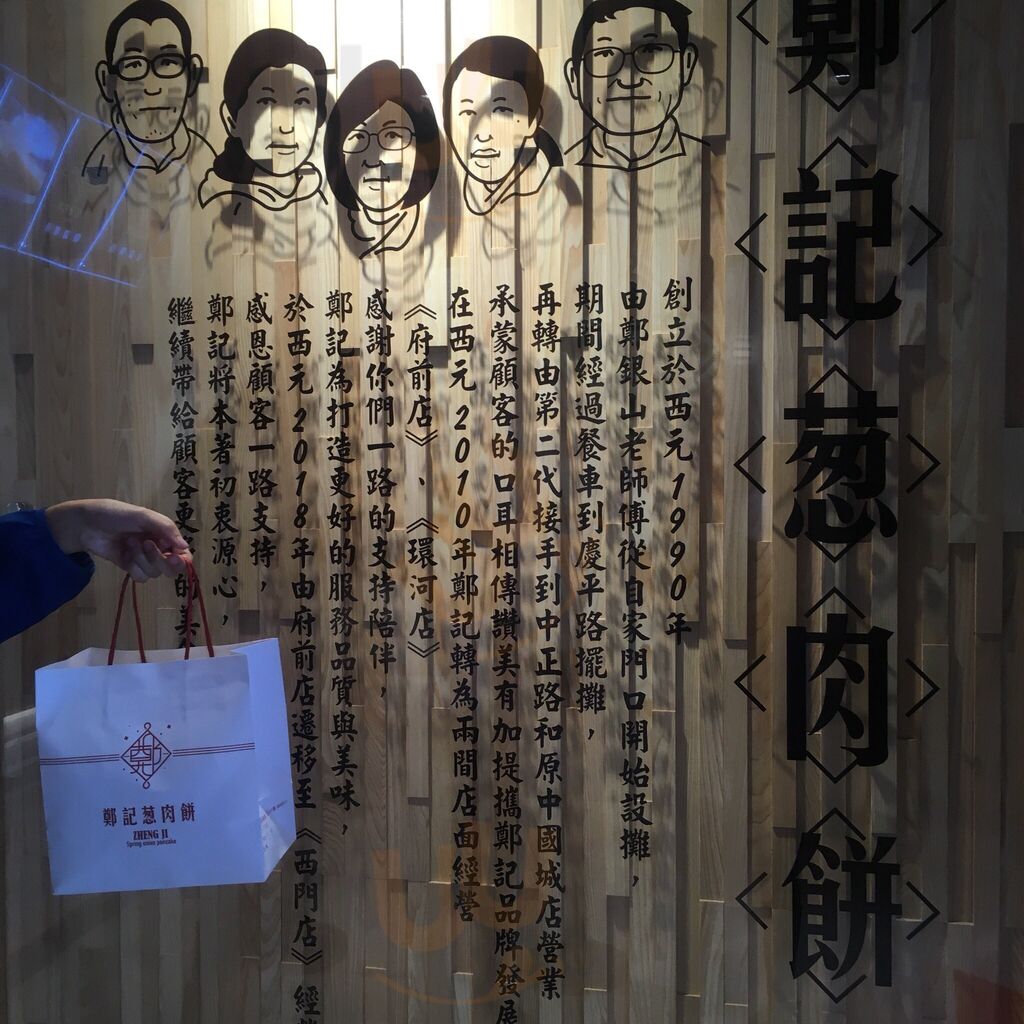 鄭記葱肉餅
創立於西元1990年
由鄭銀山老師傅從自家門口開始設攤，
期間經過餐車到慶平路擺攤，
再轉由第二代接手到中正路和原中國城店營業
承蒙顧客的口耳相傳讚美有加提攜鄭記品牌發展
在西元2010年鄭記轉為兩間店面經營
《府前店》、《環河店》
感謝你們一路的支持陪伴，
鄭記為打造更好的服務品質與美味，
於西元2018年由府前店遷移至《西門店》經
感恩顧客一路支持，
鄭記將本著初衷源心，
繼續帶給顧客更的美
鄭記葱肉餅
ZHENG JI
Spring onion pancake